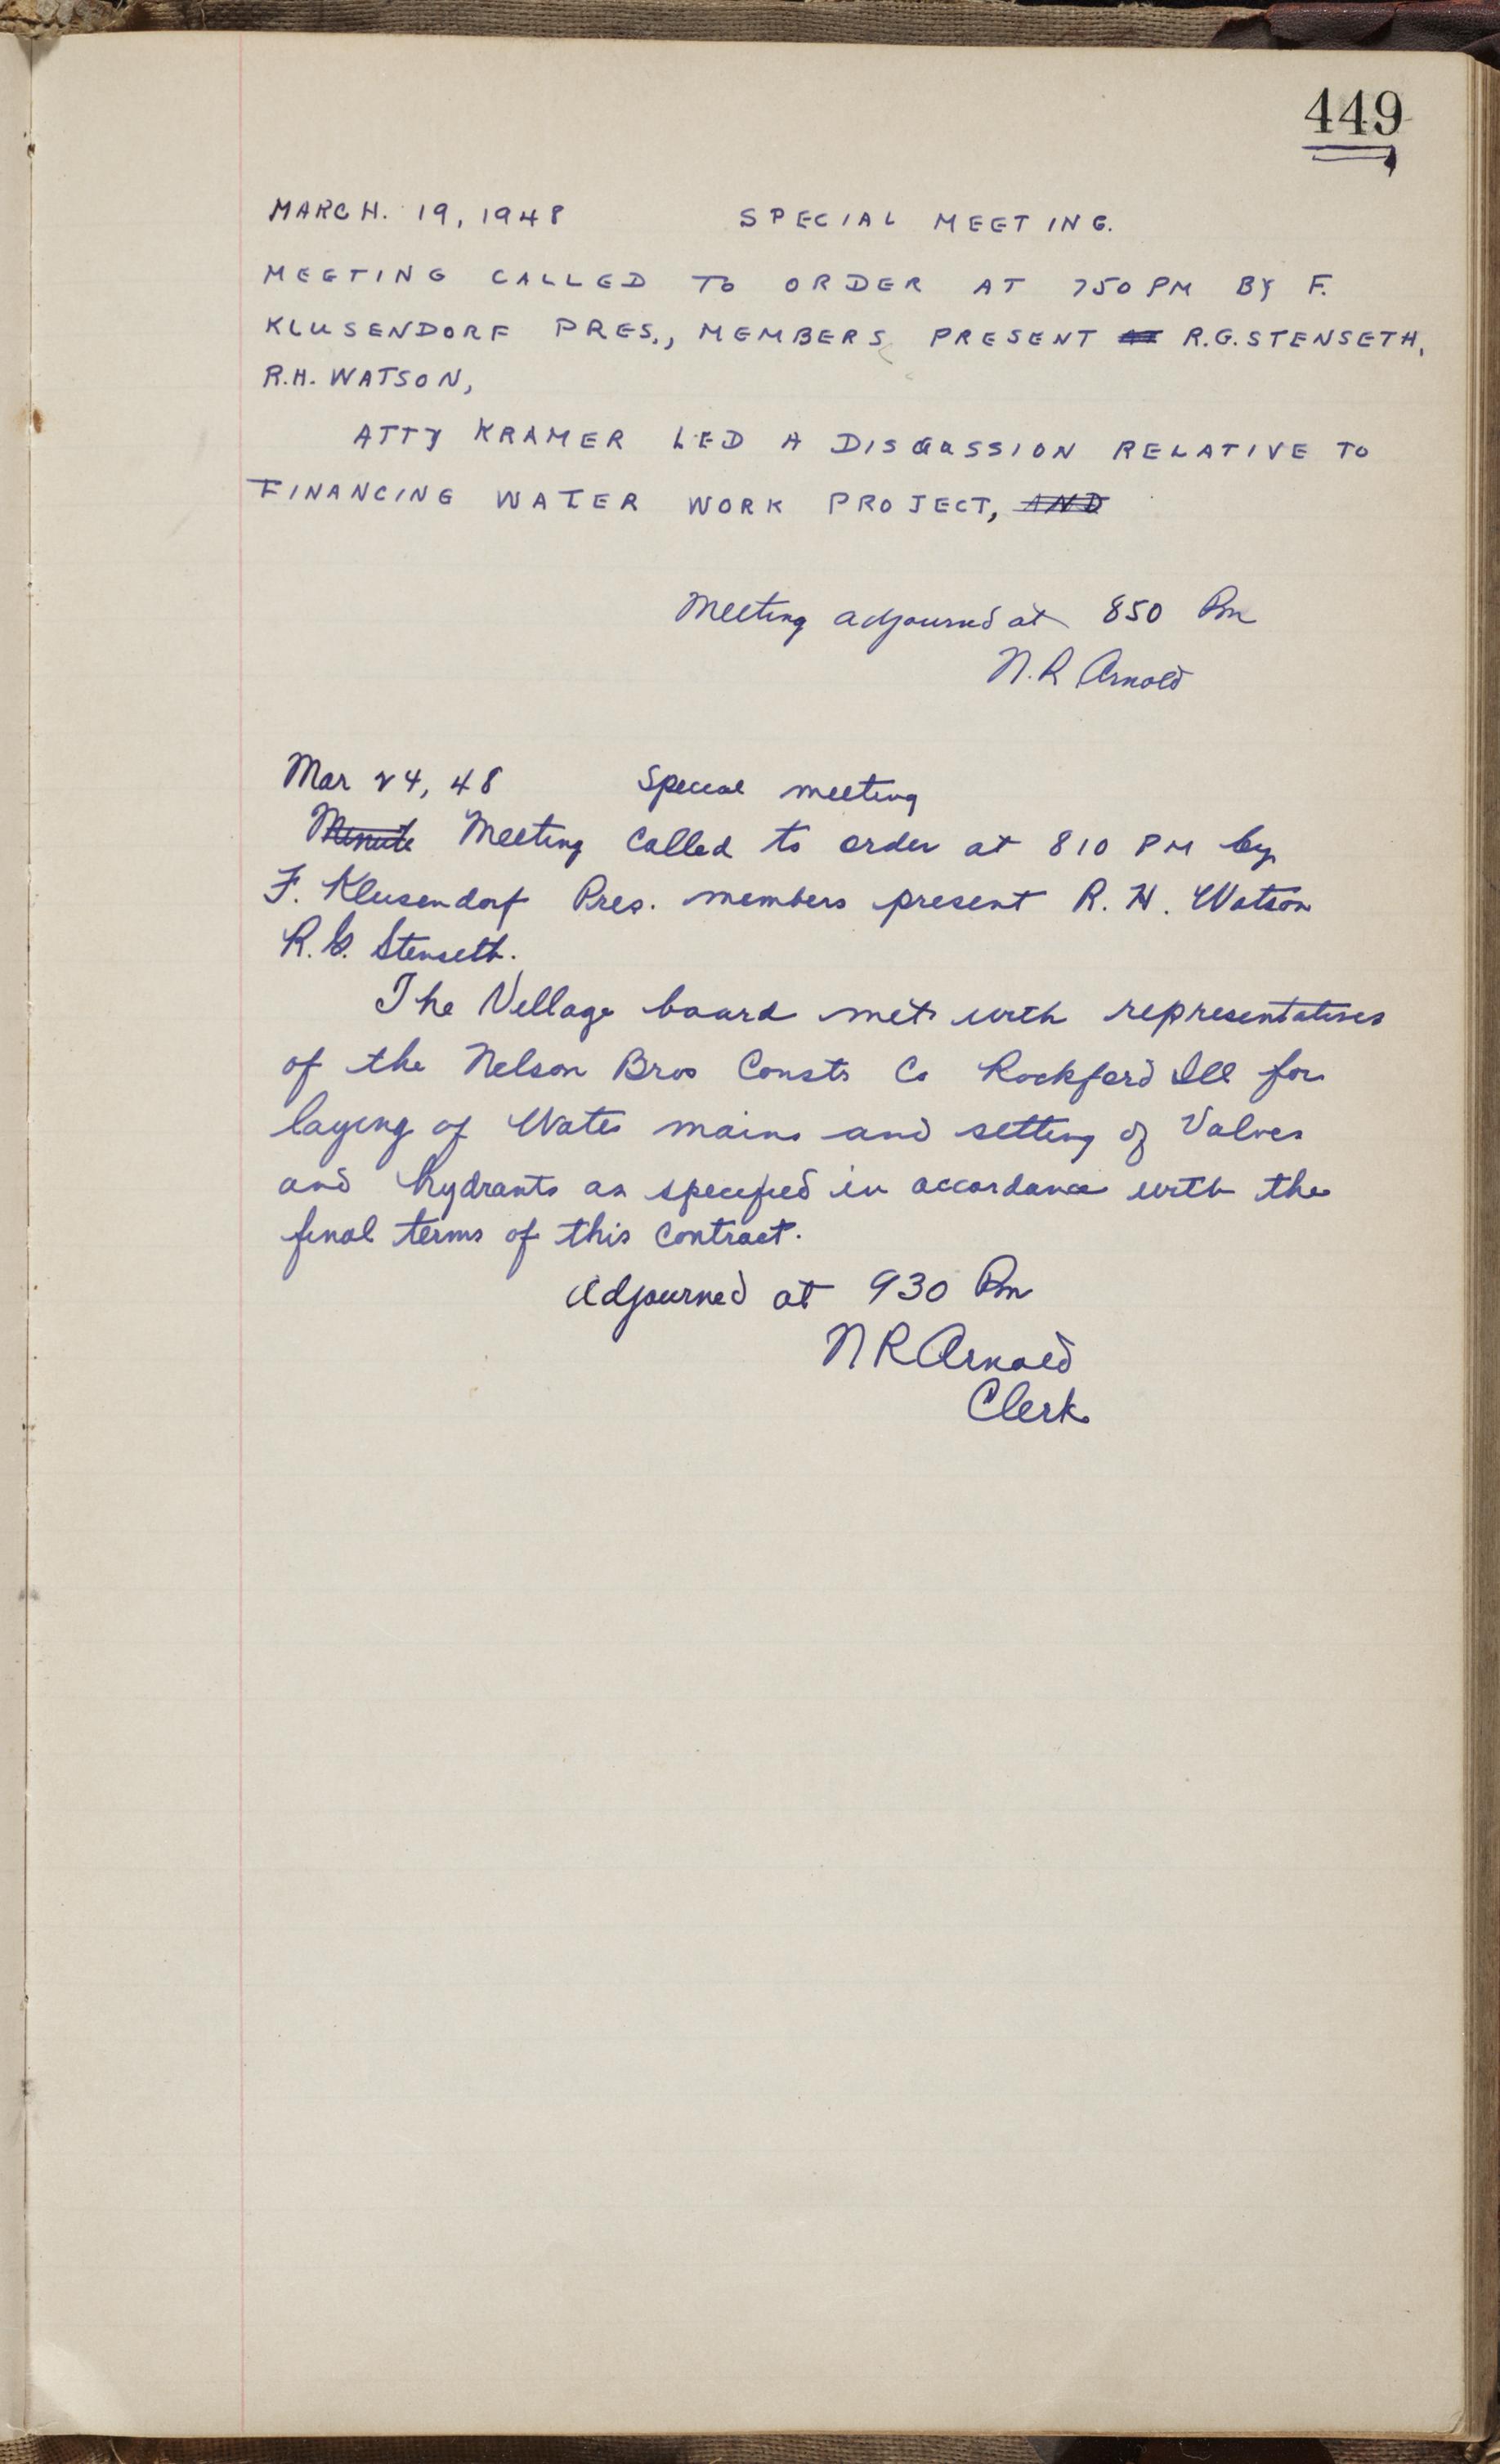 449
MARCH. 19, 1948 SPECIAL MEETING.
MEETING CALLED TO ORDER AT 750 PM BY F.
KLUSENDORF PRES., MEMBERS PRESENT R.G. STENSETH,
R.H. WATSON,
ATTY KRAMER LED A DISCUSSION RELATIVE TO
FINANCING WATER WORK PROJECT, AND
Meeting adjourned at 850 Pm
N.R Arnold
Mar 24, 48 Special meeting
Minute Meeting Called to order at 810 PM by
F. Klusendorf Pres. members present R. H. Watson
R. G. Stenseth.
The Village board met with representatives
of the Nelson Bros Constr Co Rockford Ill for
laying of Water mains and setting of Valves
and hydrants as specified in accordance with the
final terms of this Contract.
Adjourned at 930 Pm
N R Arnold
Clerk